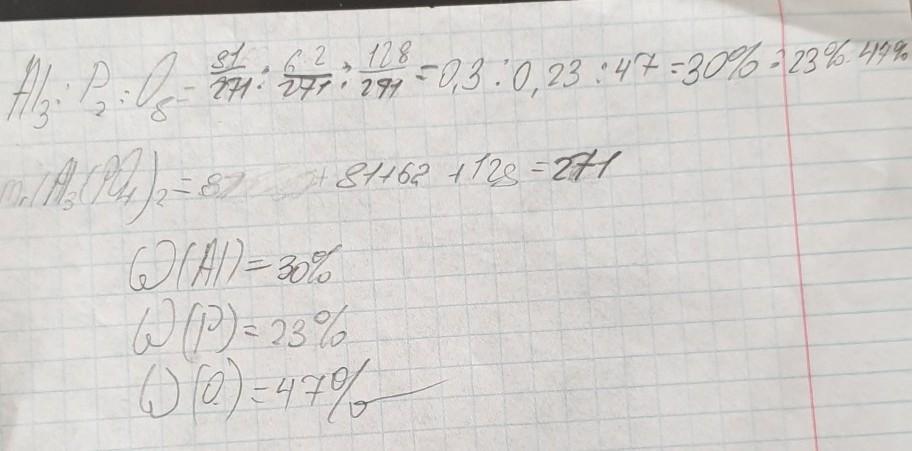 Al₃ : P₂ : O₈ = 81/271 : 62/271 : 128/271 = 0,3 : 0,23 : 47 = 30% : 23% : 47%
Mr(Al₃(PO₄)₂ = 81+62 +128 = 271
ω(Al) = 30%
ω(P) = 23%
ω(O) = 47%